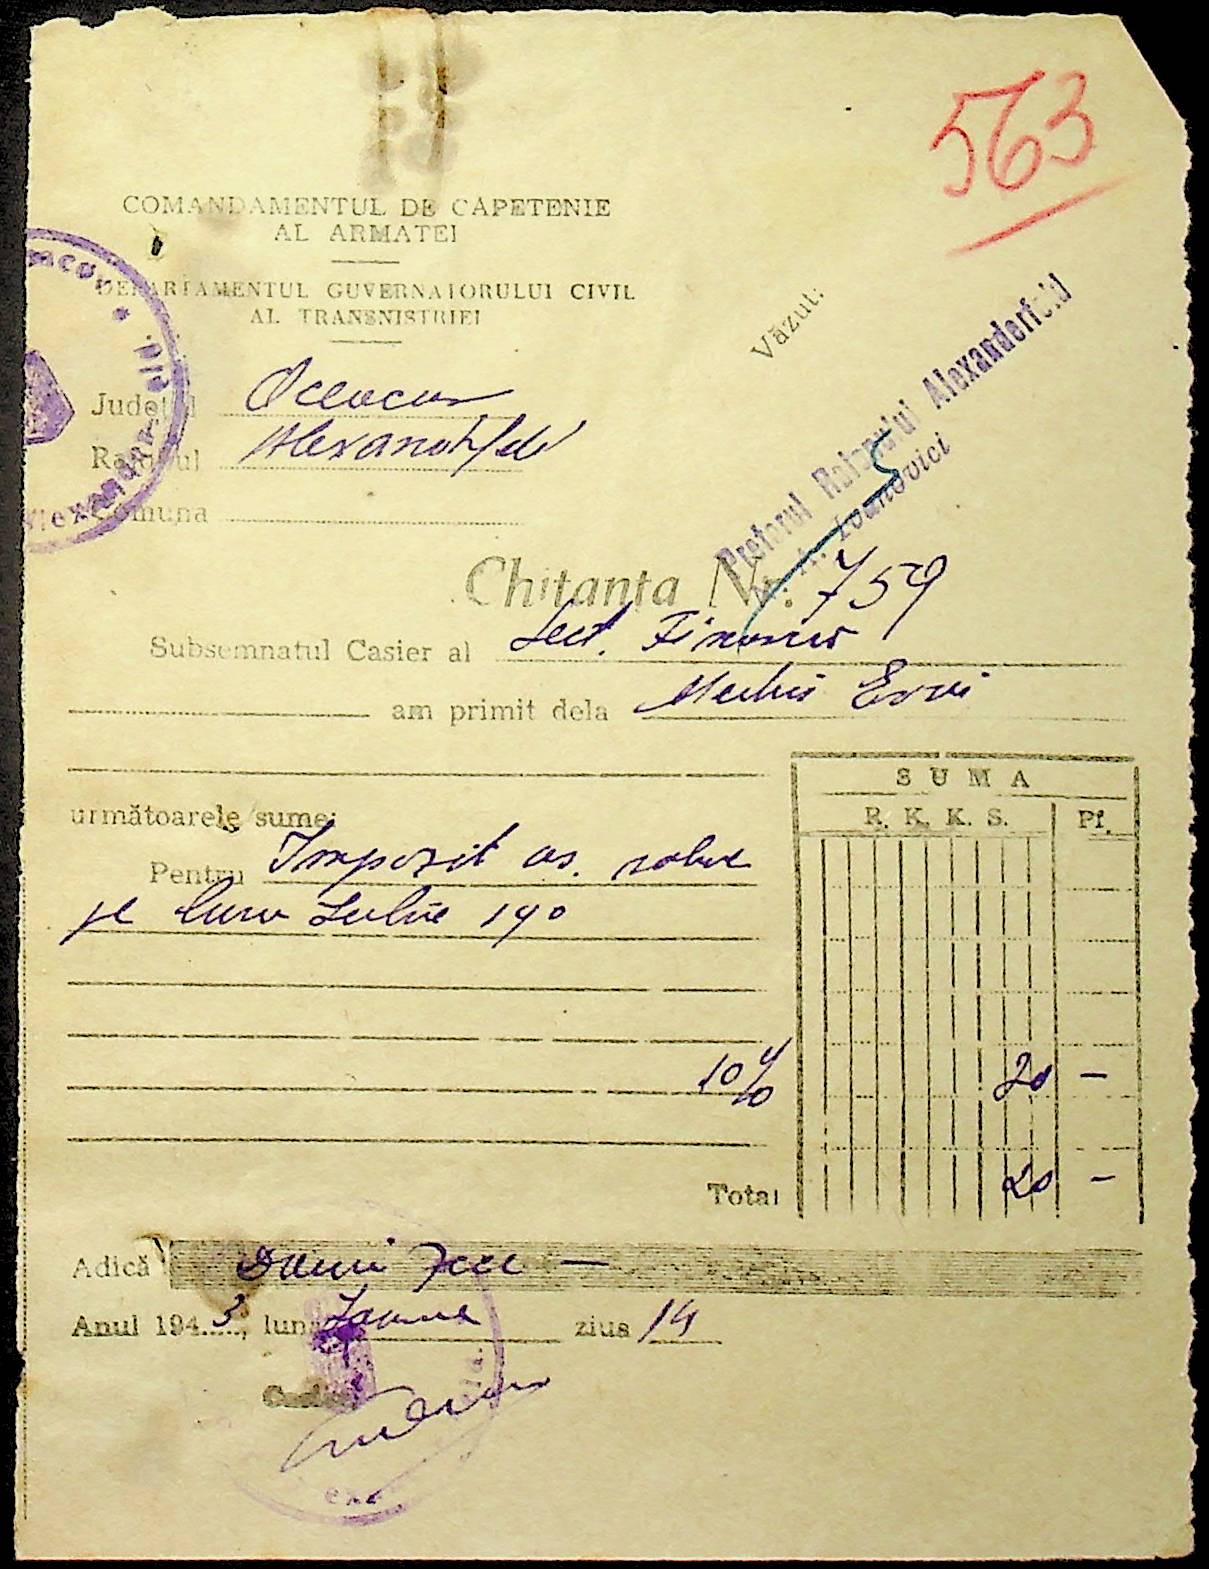 563
COMANDAMENTUL DE CAPETENIE
AL ARMATEI
DEPARTAMENTUL GUVERNATORULUI CIVIL
AL TRANSNISTRIEI
Văzut:
Pretorul Raionului Alexanderfeld
Ioanovici
Județul
Raionul
Comuna
Chitanța Nr. 759
Subsemnatul Casier al Sect. Financiar
am primit dela
SUMA
R. K. K. S. Pf.
următoarele sume:
Pentru Impozit as.
pe luna Iulie 190
10% 20 —
Total 20 —
Adică
Anul 1943, luna ziua 14
Casier